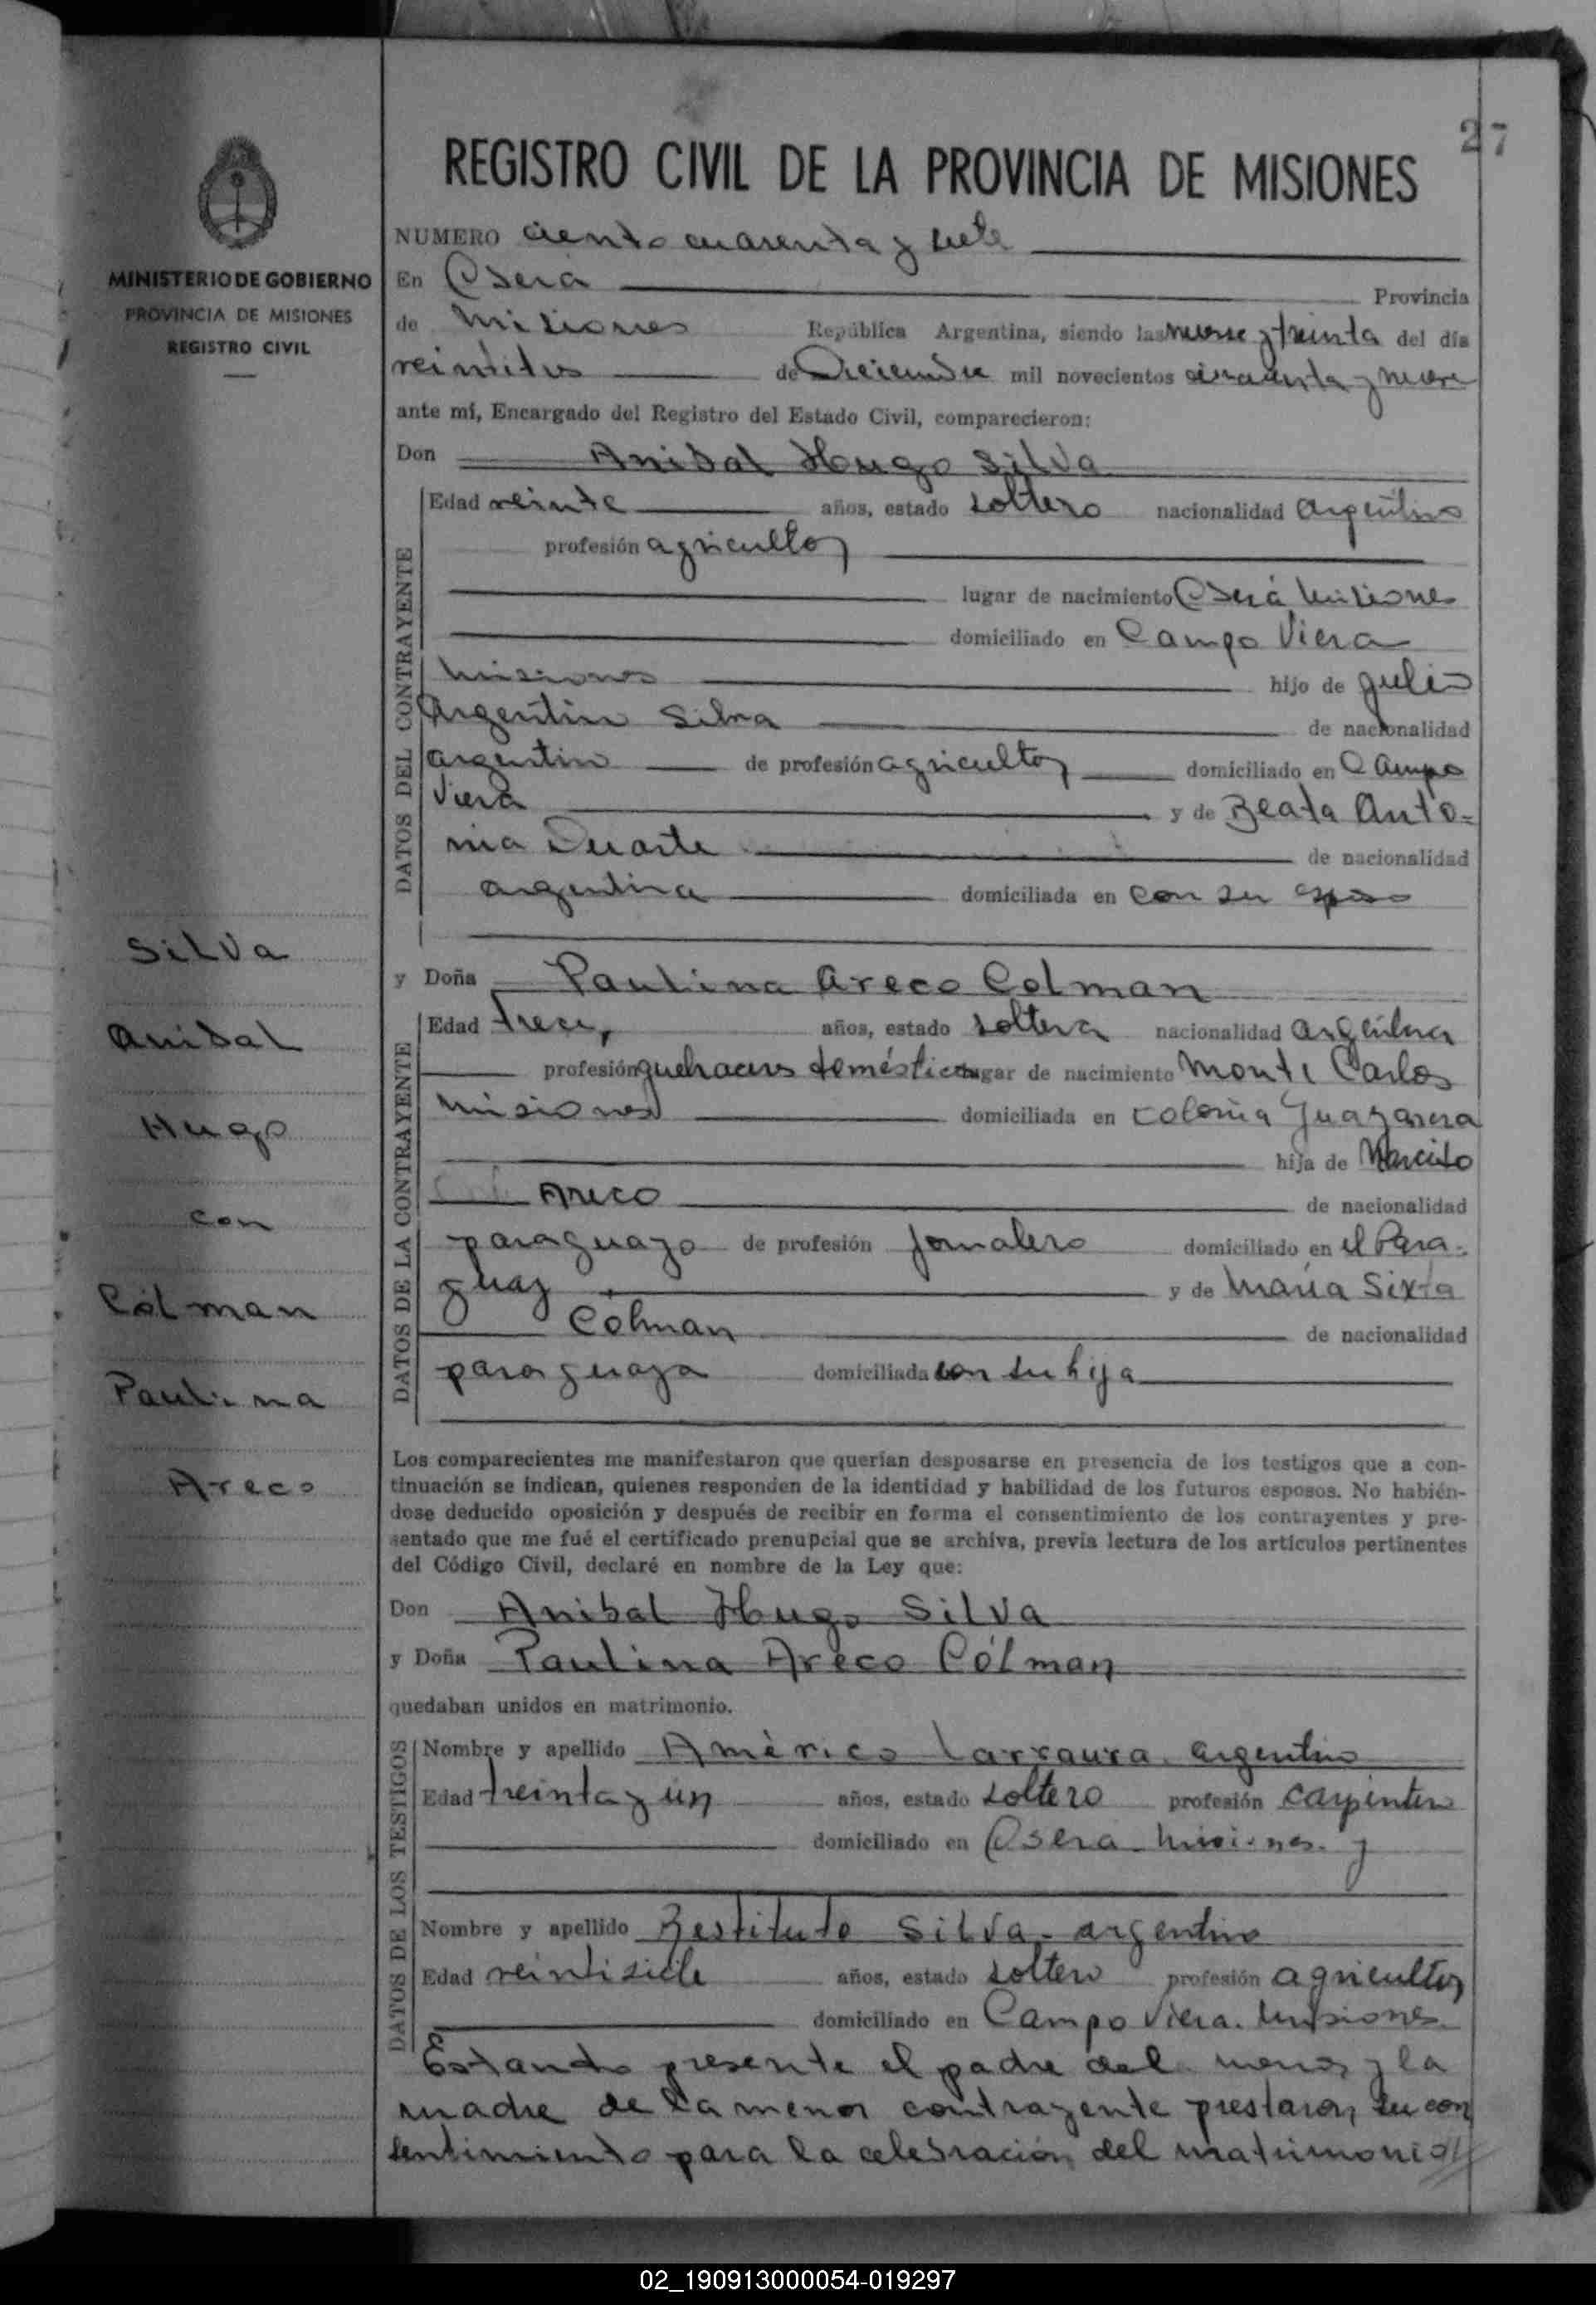 27
REGISTRO CIVIL DE LA PROVINCIA DE MISIONES
MINISTERIO DE GOBIERNO
PROVINCIA DE MISIONES
REGISTRO CIVIL
Silva
Anibal
Hugo
con
Cólman
Paulina
Areco
NUMERO ciento cuarenta y siete
En Oberá Provincia
de Misiones República Argentina, siendo las nueve y treinta del día
veintitres de Diciembre mil novecientos cincuenta y nueve
ante mí, Encargado del Registro del Estado Civil, comparecieron:
Don Anibal Hugo Silva
DATOS DEL CONTRAYENTE
Edad veinte años, estado soltero nacionalidad argentino
profesión agricultor
lugar de nacimiento Oberá Misiones
domiciliado en Campo Viera
Misiones hijo de Julio
Argentino Silva de nacionalidad
argentino de profesión agricultor domiciliado en Campo
Viera y de Beata Anto-
nia Duarte de nacionalidad
argentina domiciliada en con su esposo
y Doña Paulina Areco Colman
DATOS DE LA CONTRAYENTE
Edad trece, años, estado soltera nacionalidad argentina
profesión quehaceres domésticos lugar de nacimiento Monte Carlos
Misiones domiciliada en colonia
hija de
Areco de nacionalidad
paraguayo de profesión jornalero domiciliado en el Para-
guay y de María Sixta
Colman de nacionalidad
paraguaya domiciliada con su hija
Los comparecientes me manifestaron que querían desposarse en presencia de los testigos que a con-
tinuación se indican, quienes responden de la identidad y habilidad de los futuros esposos. No habién-
dose deducido oposición y después de recibir en forma el consentimiento de los contrayentes y pre-
sentado que me fué el certificado prenupcial que se archiva, previa lectura de los artículos pertinentes
del Código Civil, declaré en nombre de la Ley que:
Don Anibal Hugo Silva
y Doña Paulina Areco Cólman
quedaban unidos en matrimonio.
DATOS DE LOS TESTIGOS
Nombre y apellido Américo argentino
Edad treinta y un años, estado soltero profesión carpintero
domiciliado en Oberá Misiones. y
Nombre y apellido Restituto Silva - argentino
Edad veintisiete años, estado soltero profesión agricultor
domiciliado en Campo Viera. Misiones.
Estando presente el padre del menor y la
madre de la menor contrayente prestaron su con
sentimiento para la celebración del matrimonio
02_190913000054-019297